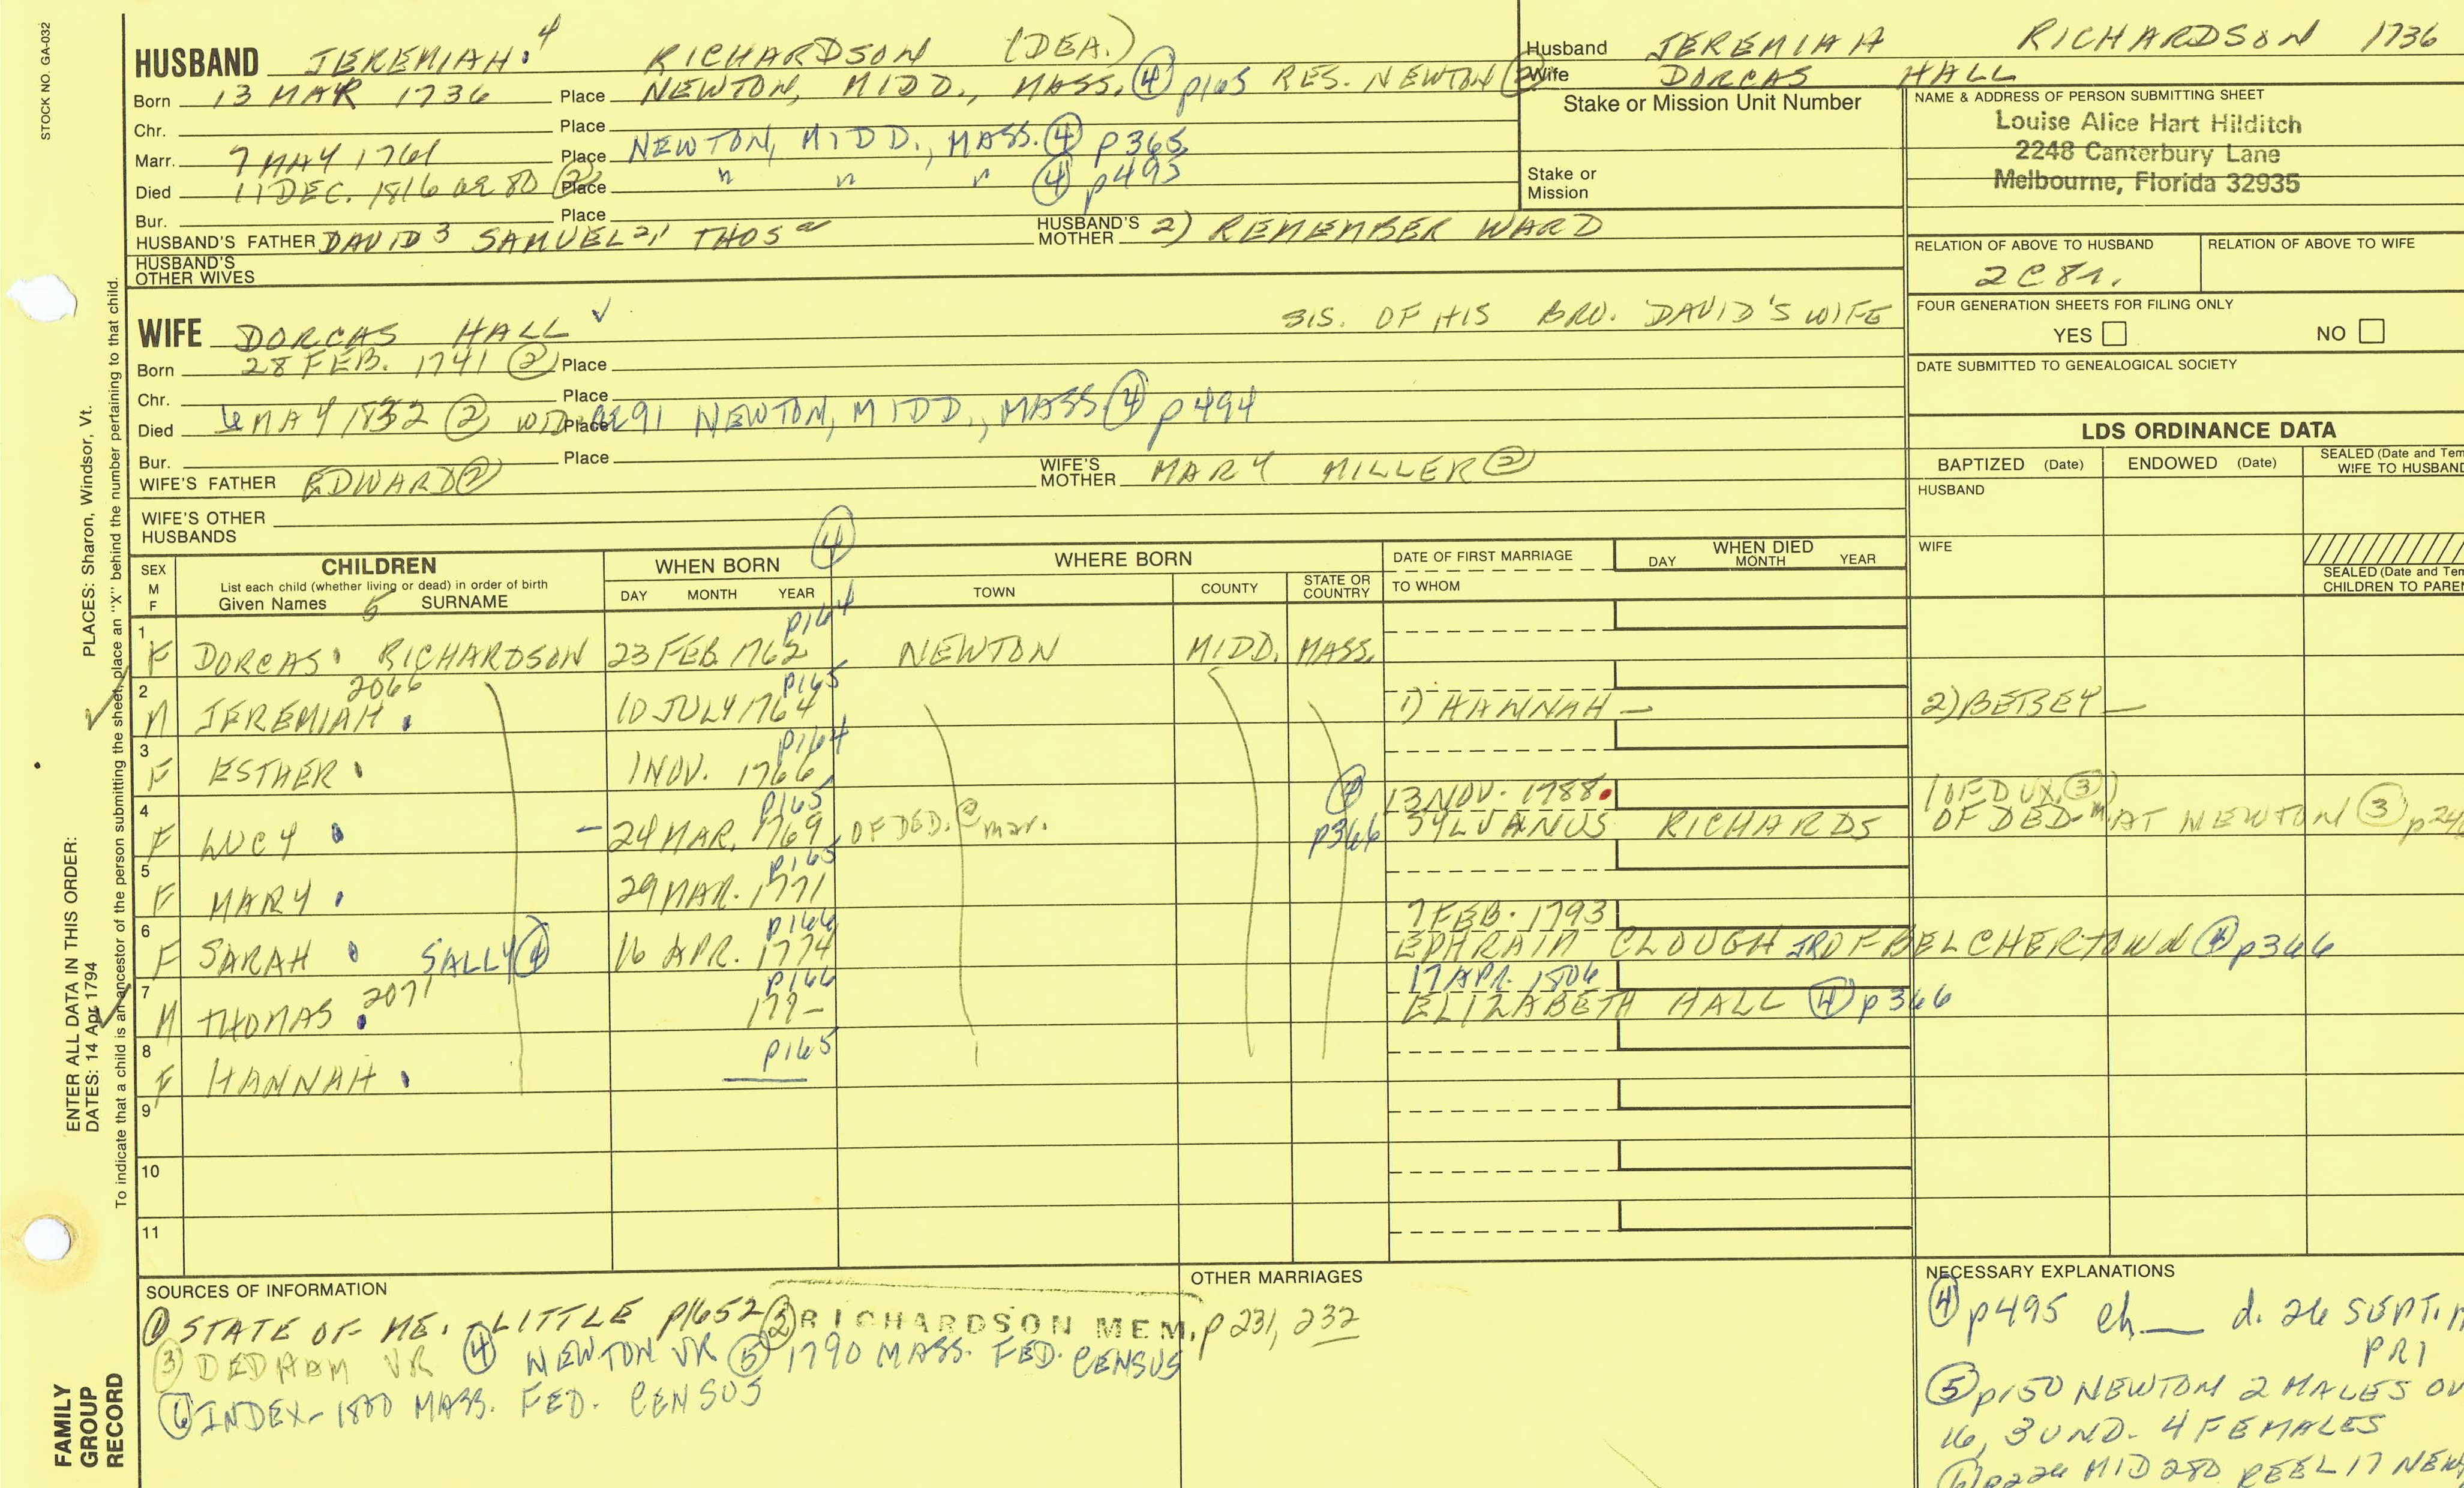 STOCK NO. GA-032
HUSBAND JEREMIAH. 4 RICHARDSON (DEA.)
Born 13 MAR 1736 Place NEWTON, MIDD., MASS. ④ p165 RES. NEWTON ②
Chr. Place
Marr. 7 MAY 1761 Place NEWTON, MIDD., MASS. ④ p365
Died 11 DEC. 1816 ae 80 ② Place " " " ④ p493
Bur. Place
HUSBAND'S FATHER DAVID 3 SAMUEL 2, THOS HUSBAND'S MOTHER 2) REMEMBER WARD
HUSBAND'S OTHER WIVES
Husband JEREMIAH RICHARDSON 1736
Wife DORCAS HALL
Stake or Mission Unit Number
Stake or Mission
NAME & ADDRESS OF PERSON SUBMITTING SHEET
Louise Alice Hart Hilditch
2248 Canterbury Lane
Melbourne, Florida 32935
RELATION OF ABOVE TO HUSBAND RELATION OF ABOVE TO WIFE
2C8r.
FOUR GENERATION SHEETS FOR FILING ONLY
YES NO
DATE SUBMITTED TO GENEALOGICAL SOCIETY
WIFE DORCAS HALL ✓ SIS. OF HIS BRO. DAVID'S WIFE
Born 28 FEB. 1741 ② Place
Chr. Place
Died 6 MAY 1832 ② WID. Place ae 91 NEWTON, MIDD., MASS ④ p494
Bur. Place
WIFE'S FATHER EDWARD ② WIFE'S MOTHER MARY MILLER ②
WIFE'S OTHER HUSBANDS
LDS ORDINANCE DATA
BAPTIZED (Date) ENDOWED (Date) SEALED (Date and Tem
WIFE TO HUSBAND
HUSBAND
WIFE
SEALED (Date and Tem
CHILDREN TO PARE
SEX M F CHILDREN WHEN BORN ④ WHERE BORN DATE OF FIRST MARRIAGE WHEN DIED
List each child (whether living or dead) in order of birth
Given Names 5 SURNAME DAY MONTH YEAR TOWN COUNTY STATE OR COUNTRY TO WHOM DAY MONTH YEAR
p164
1 F DORCAS. RICHARDSON 23 FEB. 1762 NEWTON MIDD. MASS.
2066 p165
2 M JEREMIAH. 10 JULY 1764 1) HANNAH — 2) BETSEY —
p164
3 F ESTHER. 1 NOV. 1766
p165 ④ 13 NOV. 1788. (OF DUX. ③)
4 F LUCY. 24 MAR. 1769 OF DED. @ mar. p366 SYLVANUS RICHARDS OF DED. m. AT NEWTON ③ p24
p165
5 F MARY. 29 MAR. 1771
p166 7 FEB. 1793
6 F SARAH. SALLY ④ 16 APR. 1774 EPHRAIM CLOUGH JR OF BELCHERTOWN ④ p366
2071 p166 17 APR. 1806
7 M THOMAS. 177- ELIZABETH HALL ④ p366
p165
8 F HANNAH.
9
10
11
SOURCES OF INFORMATION
① STATE OF ME. - LITTLE p1652 ② RICHARDSON MEM. p 231, 232
③ DEDHAM VR ④ NEWTON VR ⑤ 1790 MASS. FED. CENSUS
⑥ INDEX - 1800 MASS. FED. CENSUS
OTHER MARRIAGES
NECESSARY EXPLANATIONS
④ p495 ch__ d. 26 SEPT. 1
PR1
⑤ p150 NEWTON 2 MALES OV
16, 3 UND. 4 FEMALES
⑥ p226 MID 280 REEL 17 NEW
PLACES: Sharon, Windsor, Vt.
ENTER ALL DATA IN THIS ORDER:
DATES: 14 Apr 1794
To indicate that a child is an ancestor of the person submitting the sheet, place an "X" behind the number pertaining to that child.
FAMILY
GROUP
RECORD